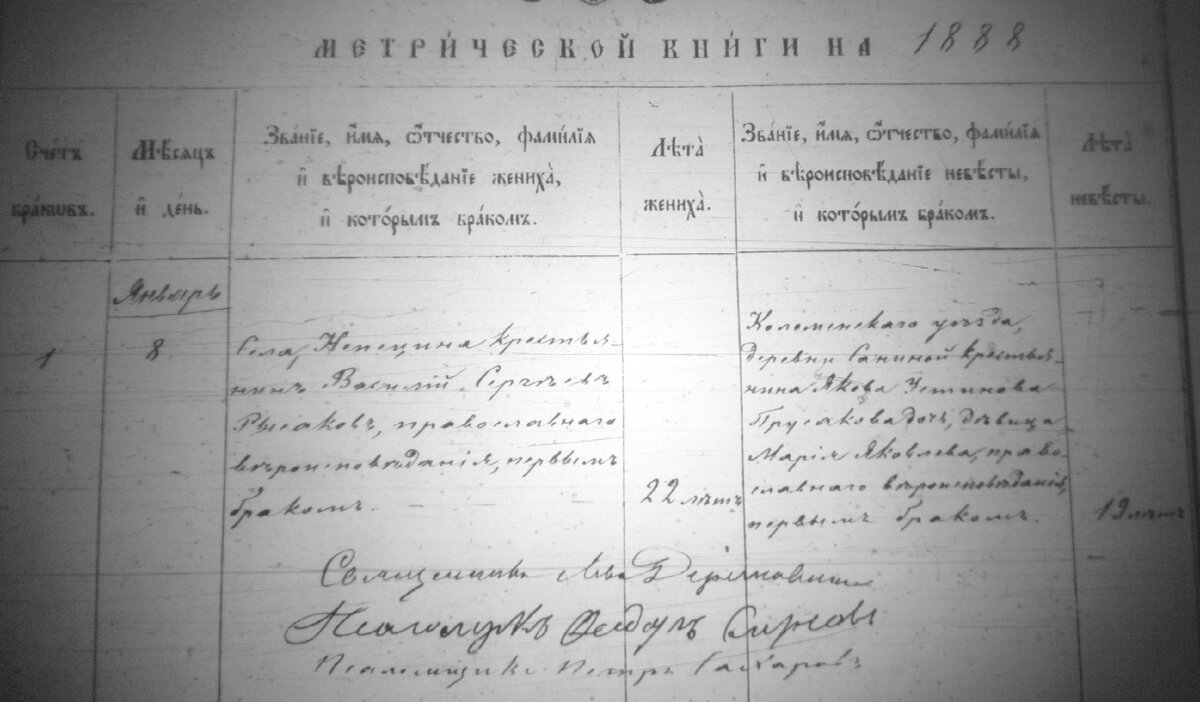 МЕТРИ́ЧЕСКОЙ КНИ́ГИ НА 1888
Сче́тъ
бра́кѡвъ.
Мѣ́сяцъ
и҆ де́нь.
Зва́нїе, и҆́мѧ, ѻ҆́тчество, фами́лїѧ
и҆ вѣроисповѣ́данїе жениха̀,
и҆ кото́рымъ бра́комъ.
Лѣ́та
жениха̀.
Зва́нїе, и҆́мѧ, ѻ҆́тчество, фами́лїѧ
и҆ вѣроисповѣ́данїе невѣ́сты,
и҆ кото́рымъ бра́комъ.
Лѣ́та
невѣ́сты.
Январь
1
8
Села Непецина крестья-
нинъ Василій Сергѣевъ
Рысаковъ, православнаго
вѣроисповѣданія, первымъ
бракомъ.
22 лѣтъ
Коломенскаго уѣзда,
деревни Саниной крестья-
нина Якова Устинова
Прусакова дочь, дѣвица
Марія Яковлева, право-
славнаго вѣроисповѣданія,
первымъ бракомъ.
19 лѣтъ
Священникъ
Псаломщикъ Петръ